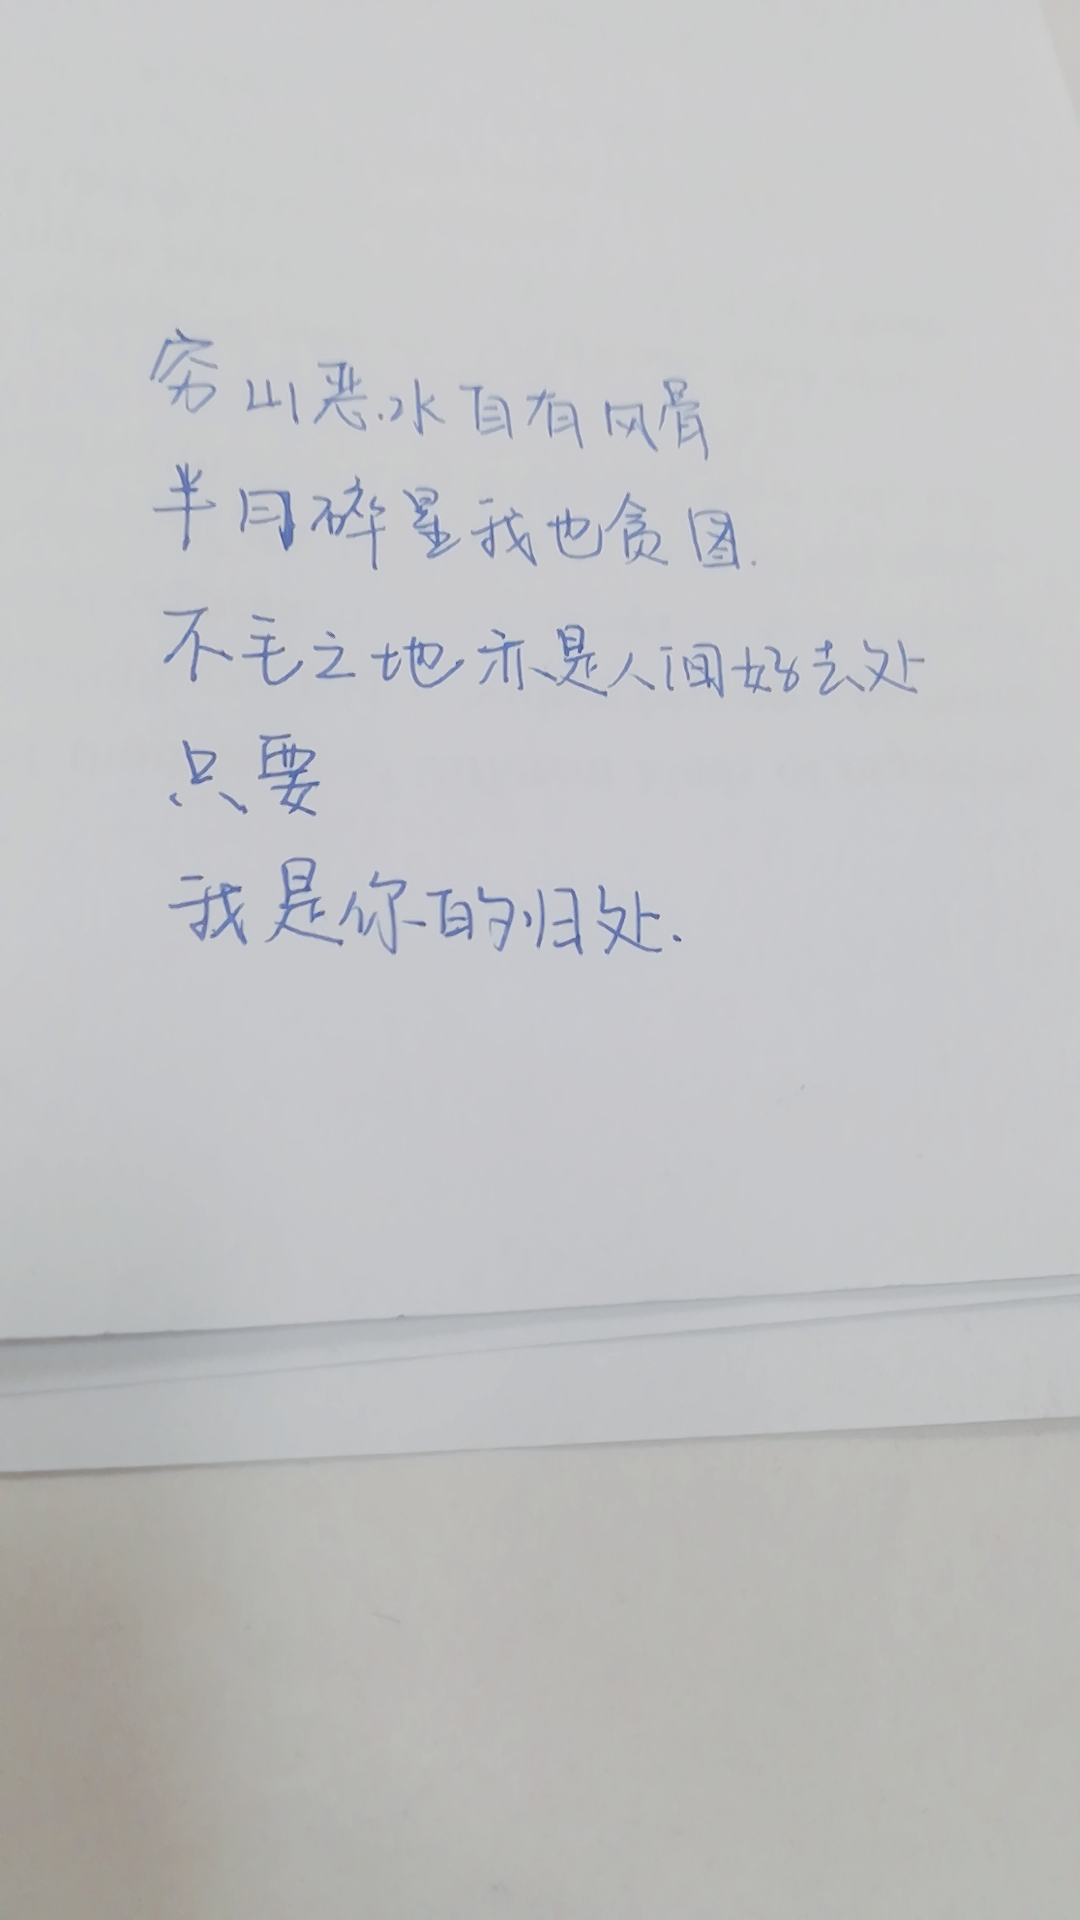 穷山恶水自有风骨
半月碎星我也贪图.
不毛之地亦是人间好去处
只要
我是你的归处.